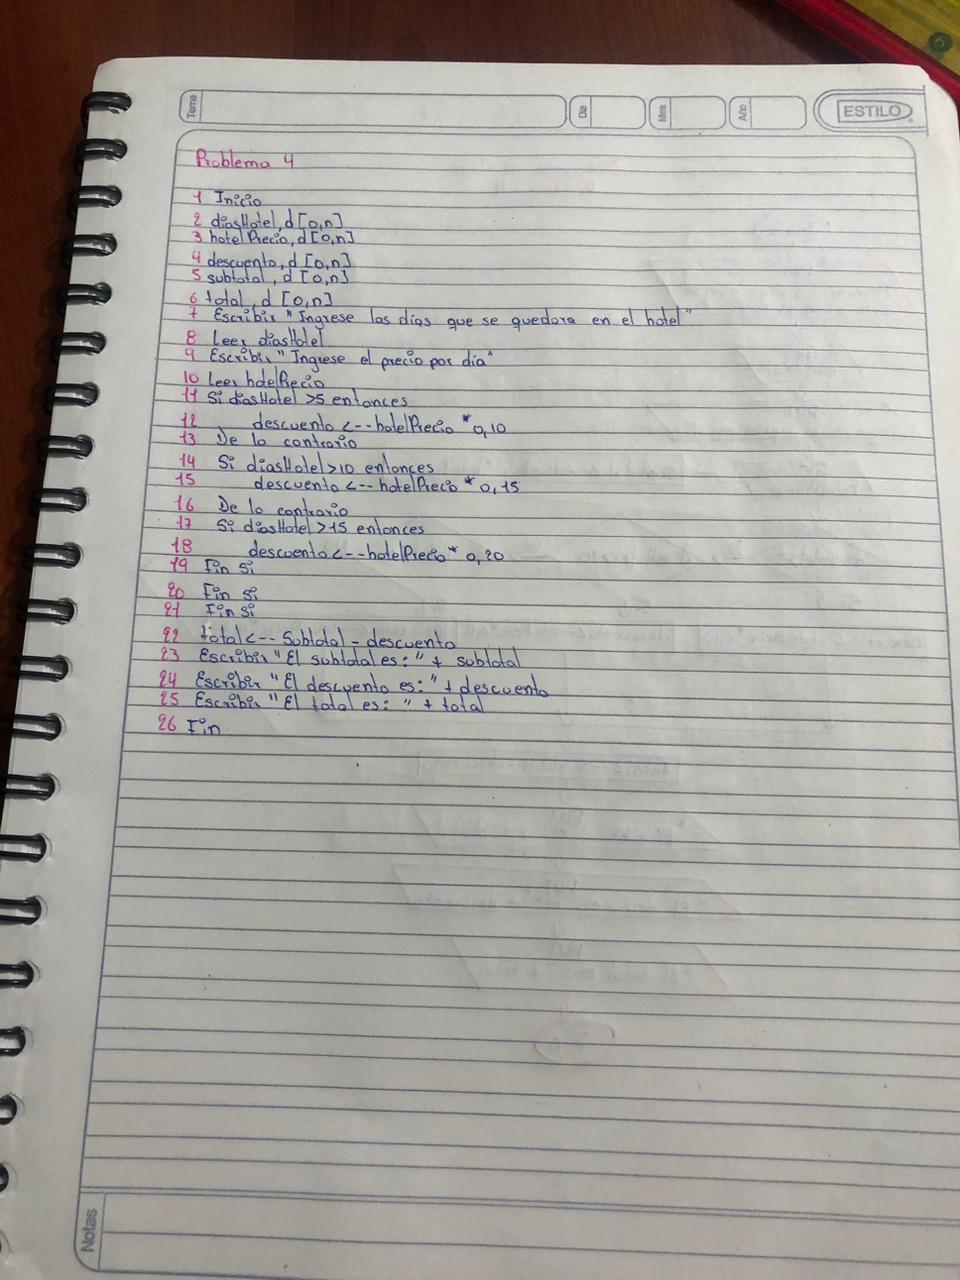 Tema
Dia
Mes
Año
ESTILO
Problema 4
1 Inicio
2 diasHotel, d [0,n]
3 hotelPrecio, d [0,n]
4 descuento, d [0,n]
5 subtotal, d [0,n]
6 total, d [0,n]
7 Escribir "Ingrese los días que se quedara en el hotel"
8 Leer diasHotel
9 Escribir "Ingrese el precio por día"
10 Leer hotelPrecio
11 Si diasHotel >5 entonces
12 descuento <-- hotelPrecio * 0,10
13 De lo contrario
14 Si diasHotel >10 entonces
15 descuento <-- hotelPrecio * 0,15
16 De lo contrario
17 Si diasHotel >15 entonces
18 descuento <-- hotelPrecio * 0,20
19 Fin si
20 Fin si
21 Fin si
22 total <-- Subtotal - descuento
23 Escribir "El subtotal es:" + subtotal
24 Escribir "El descuento es:" + descuento
25 Escribir "El total es: " + total
26 Fin
Notas